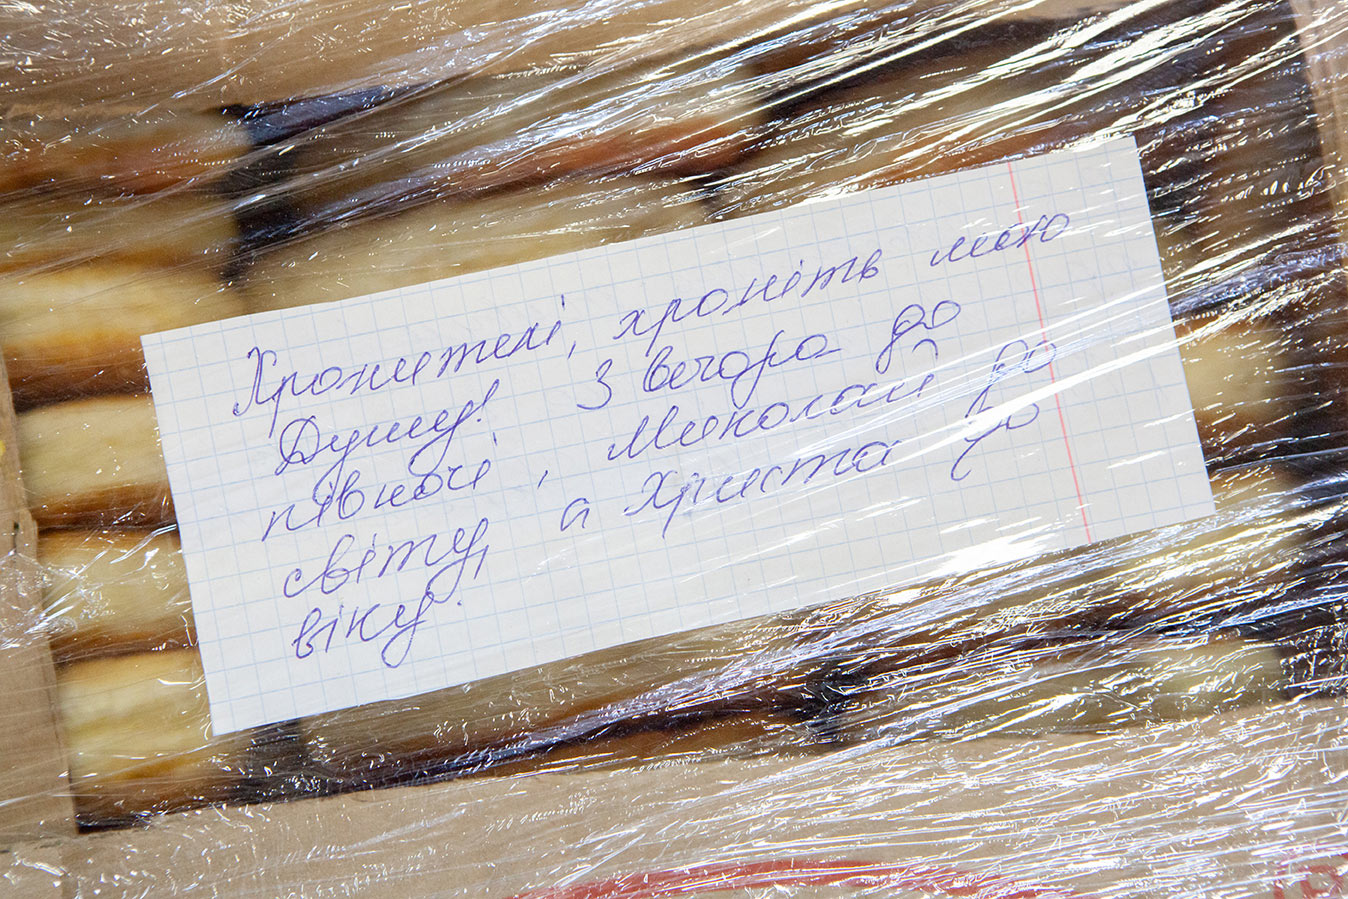 Хронителі, хроніть мою
Душу! З вечора до
півночі, Миколай до
світу, а Христа до
віку.